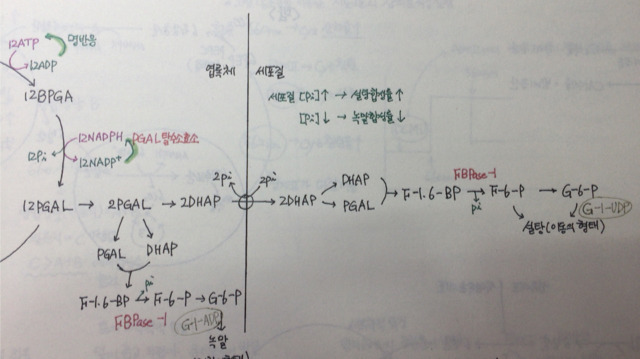 12ATP 명반응
12ADP
12BPGA
12NADPH PGAL탈수소효소
12Pi
12NADP+
12PGAL → 2PGAL → 2DHAP
PGAL DHAP
F-1.6-BP → F-6-P → G-6-P
Pi
FBPase-1
G-1-ADP
녹말
엽록체 세포질
세포질 [Pi]↑ → 설탕합성률 ↑
[Pi]↓ → 녹말합성률 ↓
2Pi 2Pi
2DHAP
DHAP
PGAL
F-1.6-BP → F-6-P → G-6-P
FBPase-1
Pi
G-1-UDP
설탕(이동의 형태)